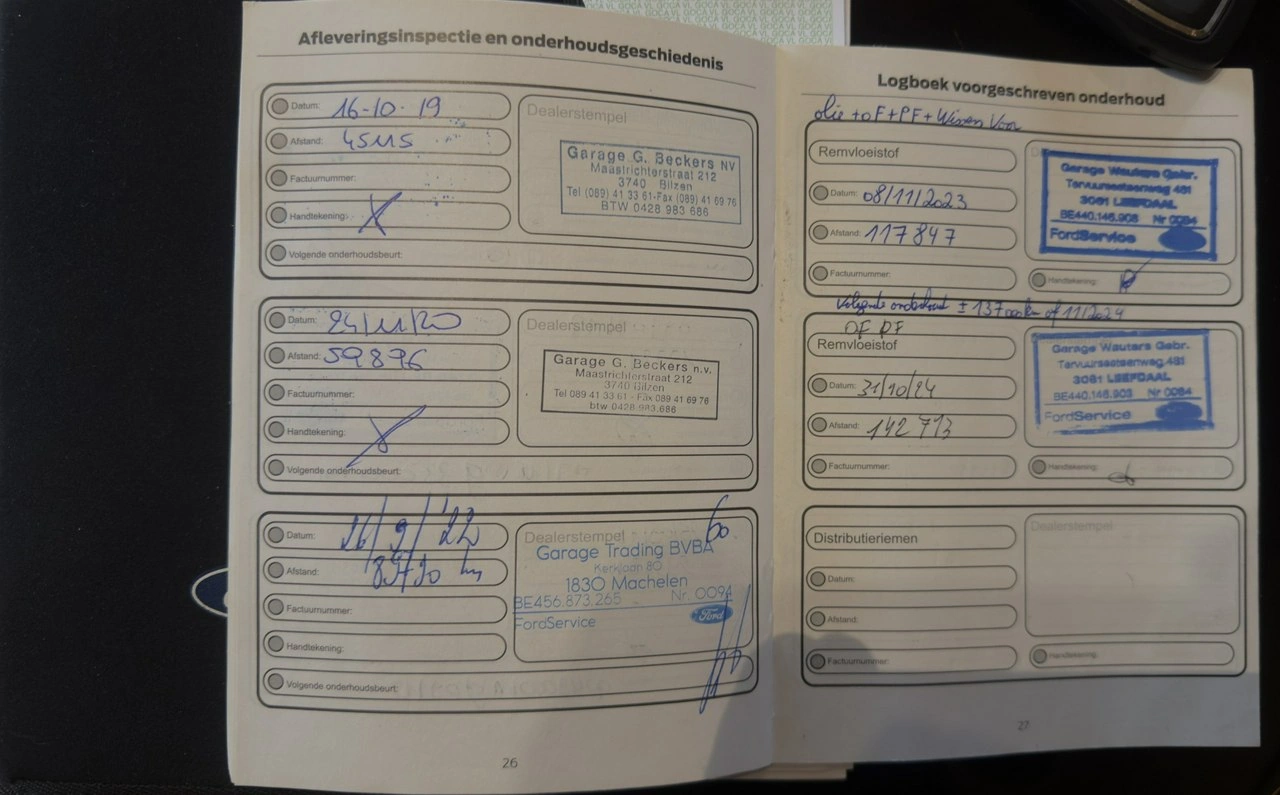 Afleveringsinspectie en onderhoudsgeschiedenis
Datum: 16-10-19
Afstand: 45115
Factuurnummer:
Handtekening:
Volgende onderhoudsbeurt:
Dealerstempel
Garage G. Beckers NV
Maastrichterstraat 212
3740 Bilzen
Tel (089) 41 33 61-Fax (089) 41 69 76
BTW 0428 983 686
Datum: 24/11/20
Afstand: 59896
Factuurnummer:
Handtekening:
Volgende onderhoudsbeurt:
Dealerstempel
Garage G. Beckers n.v.
Maastrichterstraat 212
3740 Bilzen
Tel 089 41 33 61 - Fax 089 41 69 76
btw 0428.983.686
Datum: 26/9/'22
Afstand: km
Factuurnummer:
Handtekening:
Volgende onderhoudsbeurt:
Dealerstempel
Garage Trading BVBA
Kerklaan 80
1830 Machelen
BE456.873.265 Nr. 0094
FordService
Ford
26
Logboek voorgeschreven onderhoud
olie + oF + PF + Wissen Voor
Remvloeistof
Datum: 08/11/2023
Afstand: 117847
Factuurnummer:
Garage Wauters Gebr.
Tervuursesteenweg 481
3061 LEEFDAAL
BE440.146.903 Nr 0084
FordService
Handtekening:
Volgende onderhoud ± 137 km of 11/2024
OF PF
Remvloeistof
Datum: 31/10/24
Afstand: 142713
Factuurnummer:
Garage Wauters Gebr.
Tervuursesteenweg.481
3061 LEEFDAAL
BE440.146.903 Nr 0084
FordService
Handtekening:
Distributieriemen
Datum:
Afstand:
Factuurnummer:
Dealerstempel
Handtekening:
27